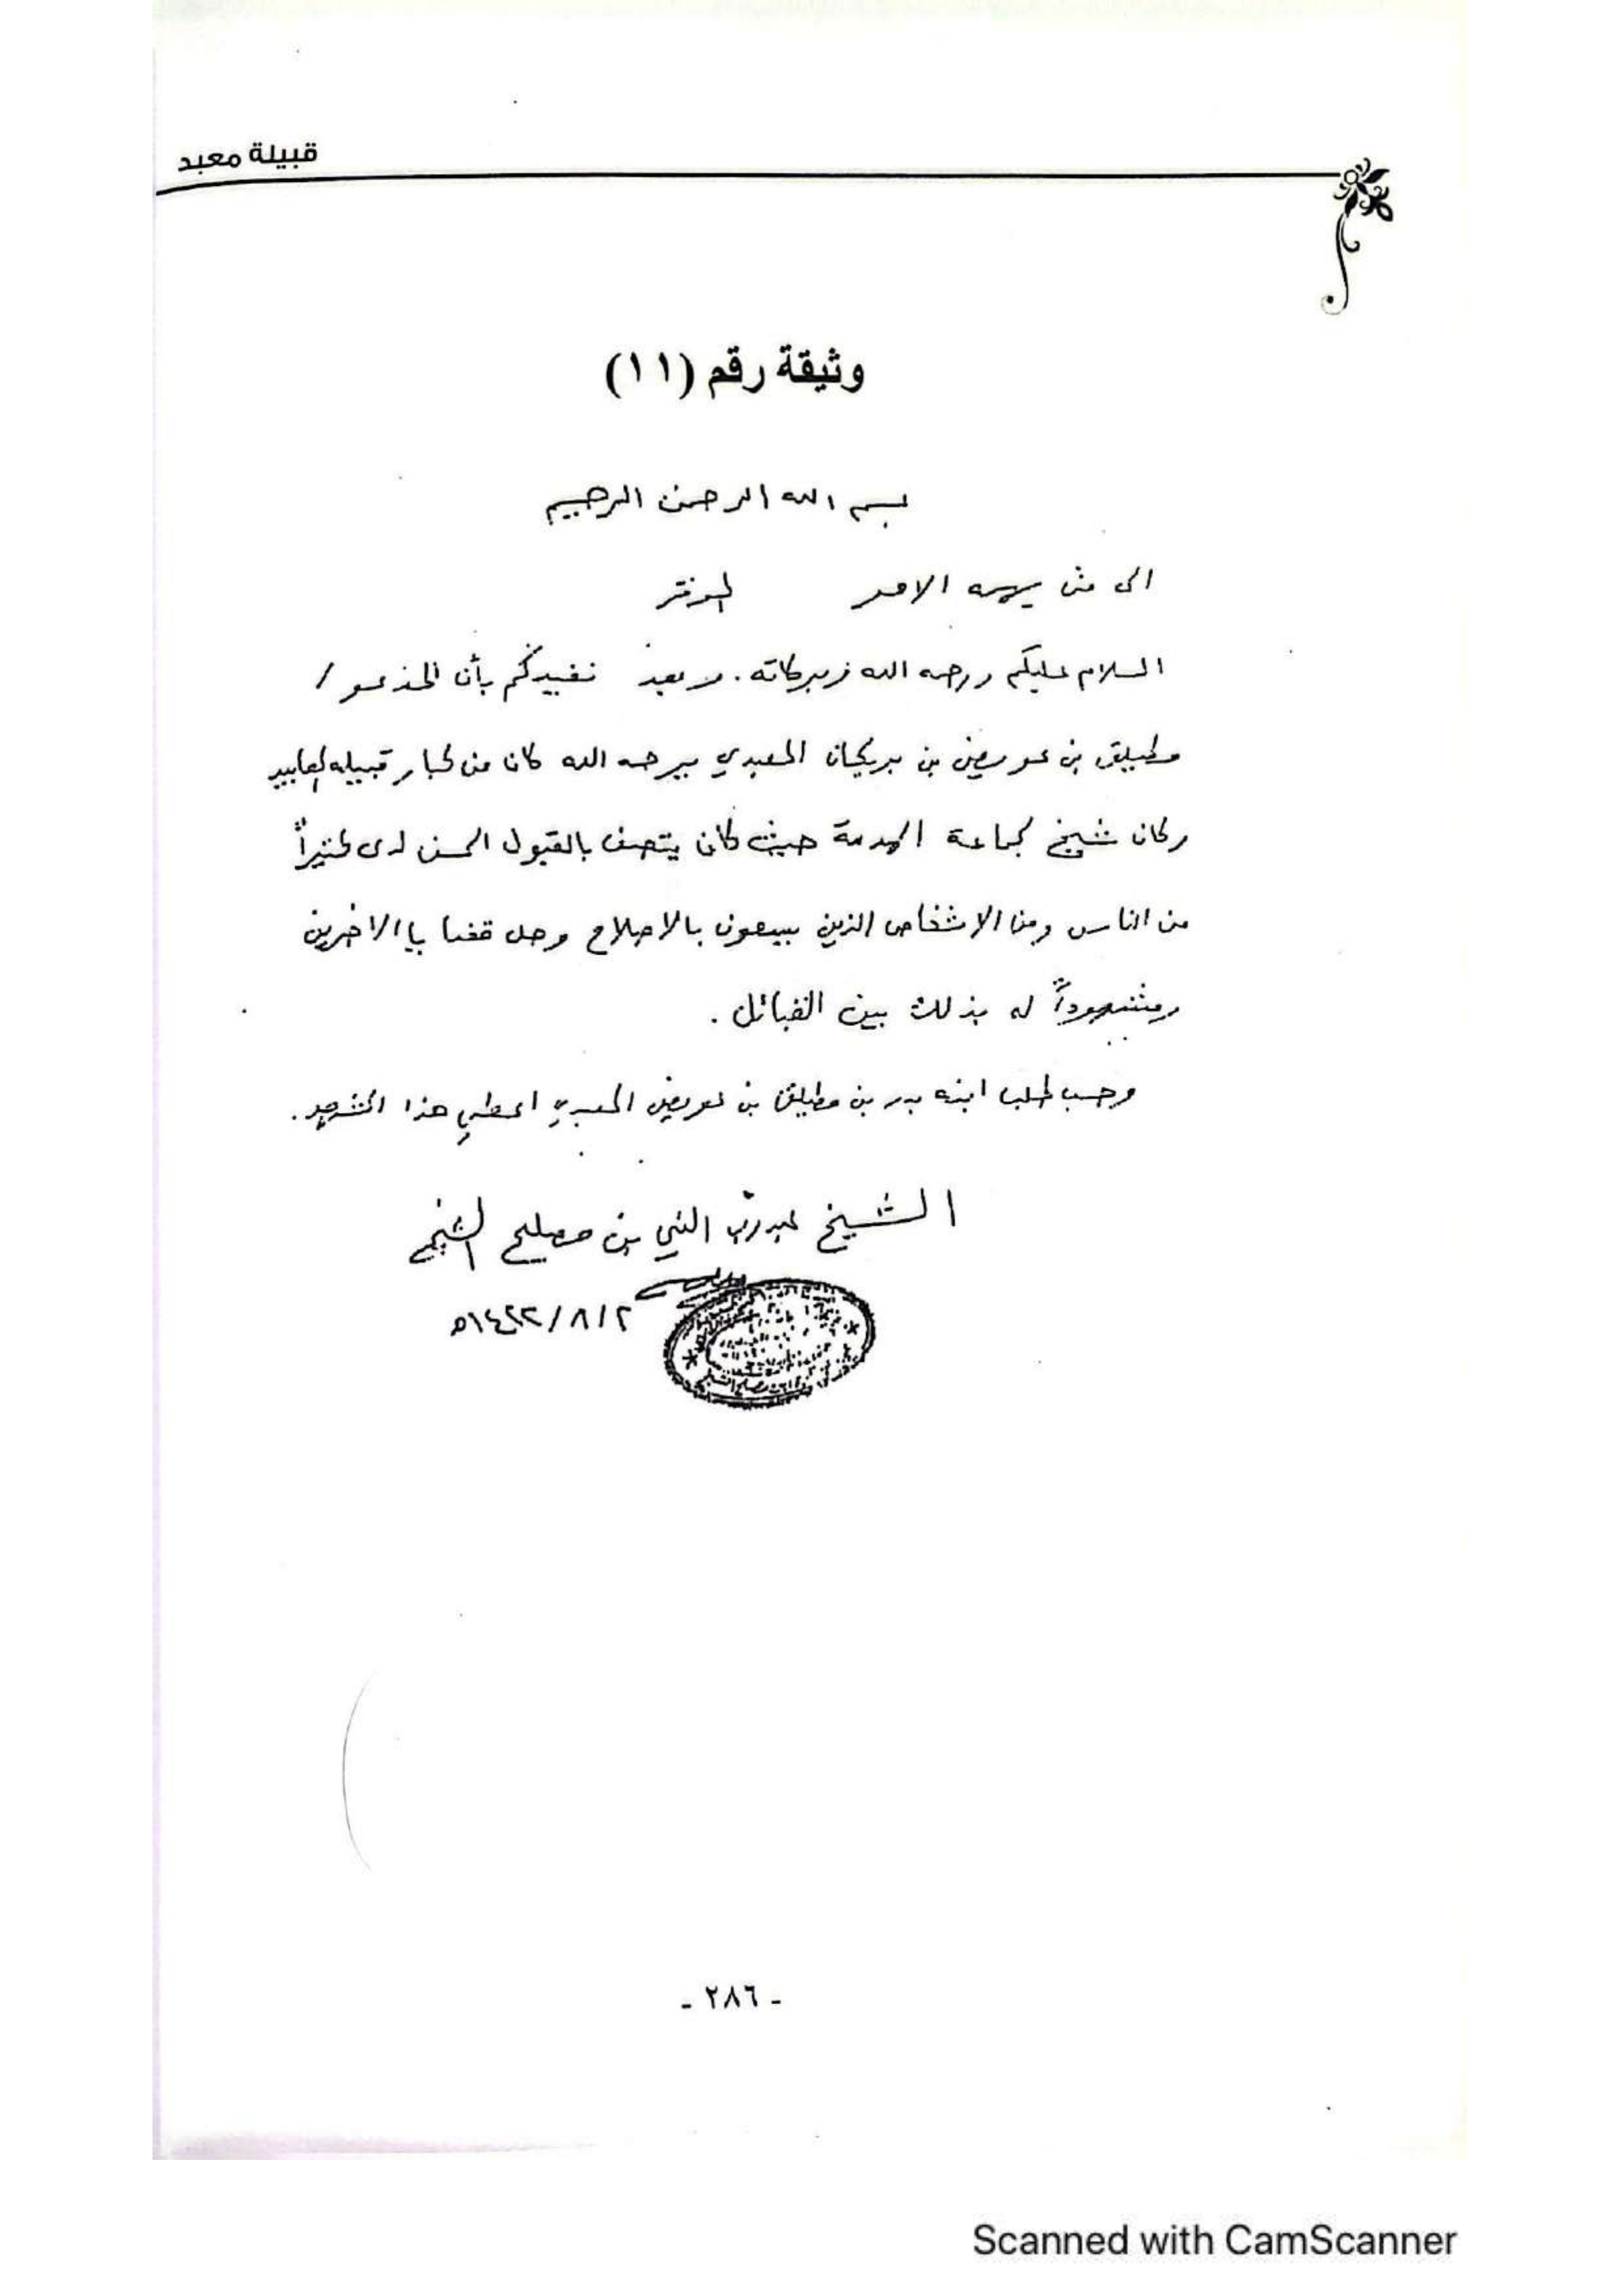 قبيلة معبد
وثيقة رقم (١١)
بسم الله الرحمن الرحيم
الى من يهمه الامر الموقر
السلام عليكم ورحمه الله وبركاته. وبعد نفيدكم بأن المدعو /
مطيلق بن عويض بن بريكان المعبدي يرحمه الله كان من كبار قبيله المعابيد
وكان شيخ لجماعة الهدمة حيث كان يتصف بالقبول الحسن لدى كثيراً
من الناس ومن الاشخاص الذين يسعون بالاصلاح وحل قضايا الاخرين
ومشهوداً له بذلك بين القبائل .
وحسب طلب ابنه بدر بن مطيلق بن عويض المعبدي اعطي هذا المشهد .
الشيخ عبدرب النبي بن مصلح الشيخ
١٤٢٢/٨/٢ه
- ٢٨٦ -
Scanned with CamScanner